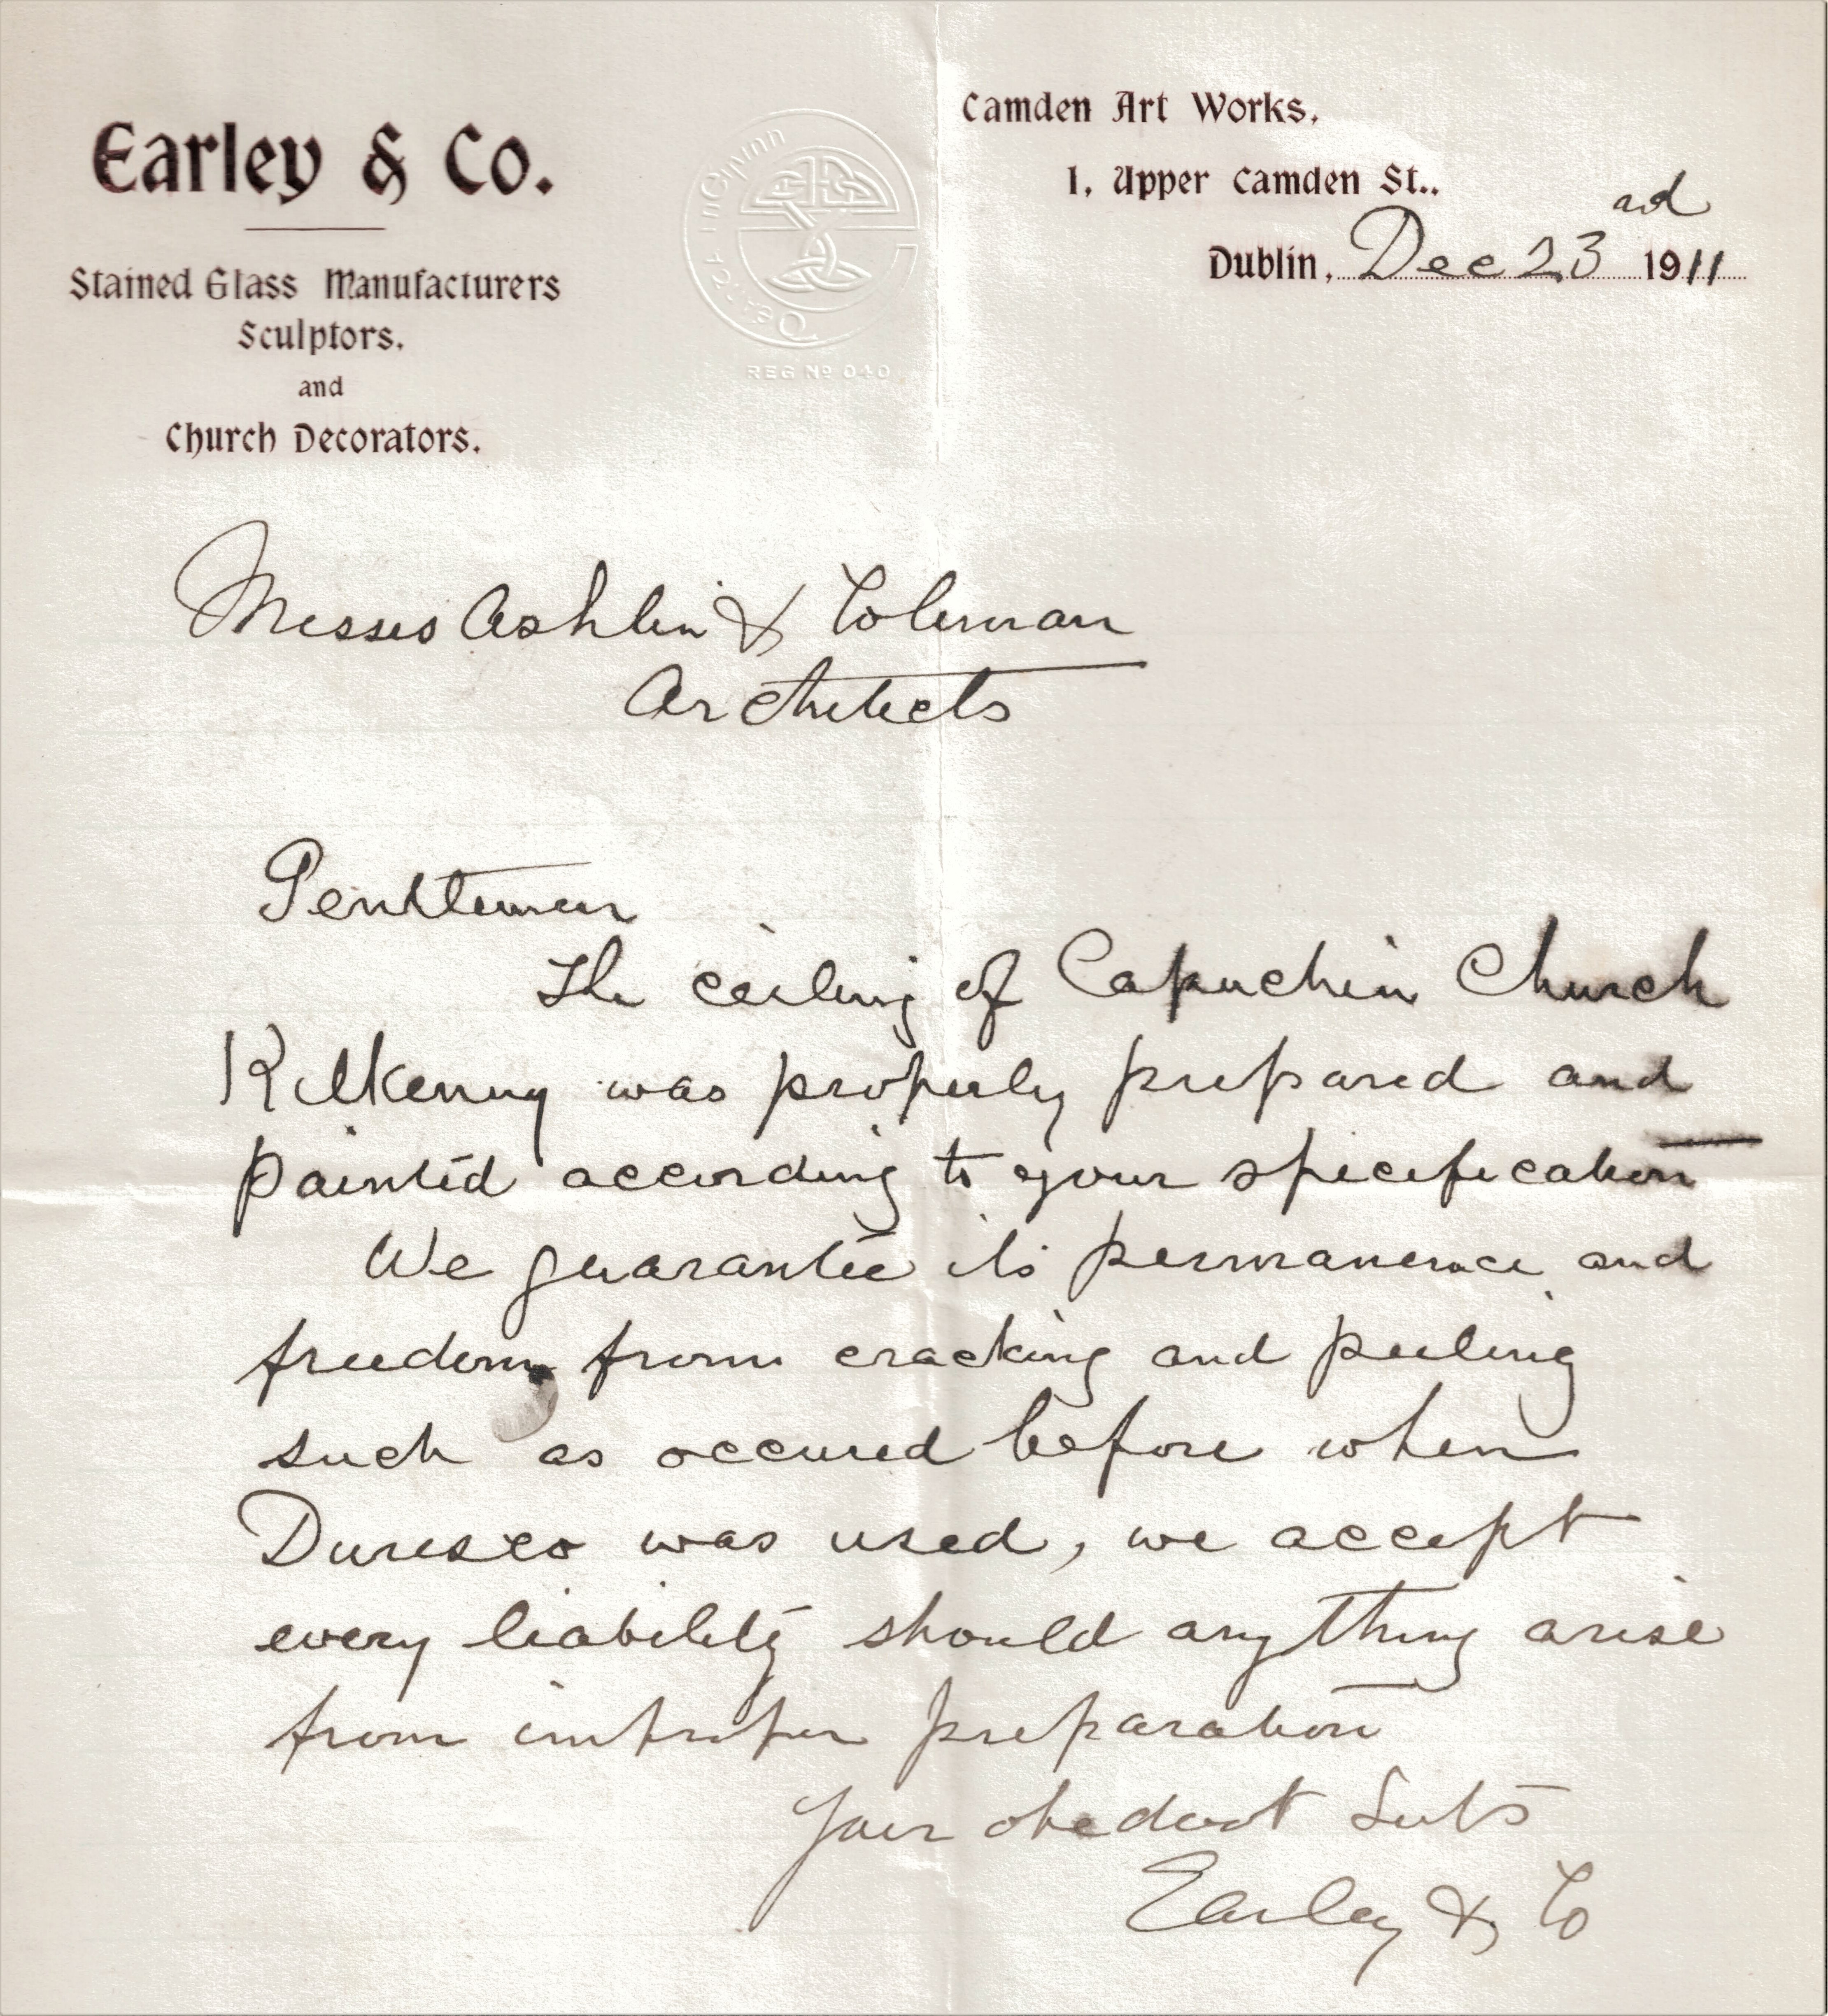 Earley & Co.
Stained Glass Manufacturers
Sculptors,
and
Church Decorators.
REG Nº 040
Camden Art Works,
1, Upper Camden St..
Dublin, Dec 23rd 1911
Messrs Ashlin & Coleman
Architects
Gentlemen
The ceiling of Capuchin Church
Kilkenny was properly prepared and
painted according to your specification
We guarantee its permanence and
freedom from cracking and peeling
such as occured before when
Duresco was used, we accept
every liability should anything arise
from improper preparation
Your obedient Svts
Earley & Co